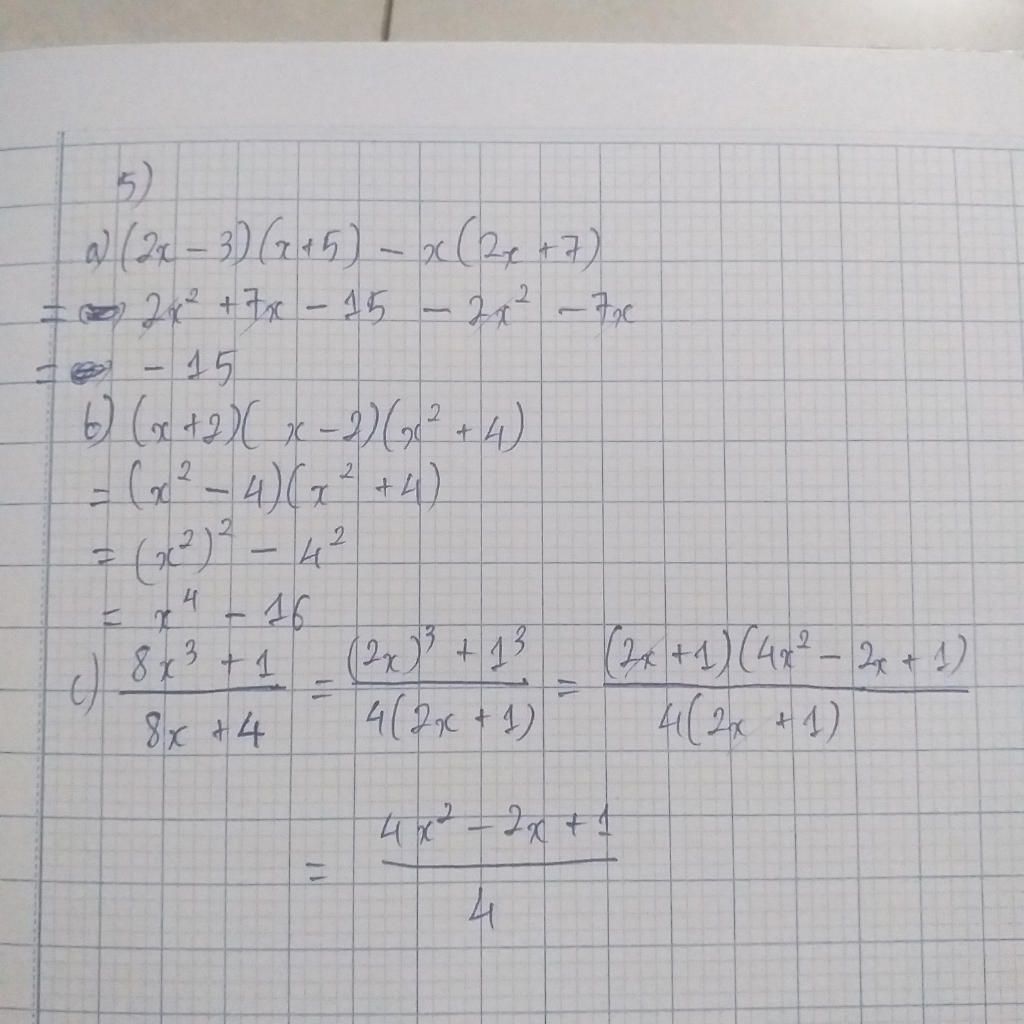 5)
a) (2x - 3)(x + 5) - x(2x + 7)
= 2x² + 7x - 15 - 2x² - 7x
= - 15
b) (x + 2)(x - 2)(x² + 4)
= (x² - 4)(x² + 4)
= (x²)² - 4²
= x⁴ - 16
c) (8x³ + 1)/(8x + 4) = ((2x)³ + 1³)/(4(2x + 1)) = ((2x + 1)(4x² - 2x + 1))/(4(2x + 1))
= (4x² - 2x + 1)/4